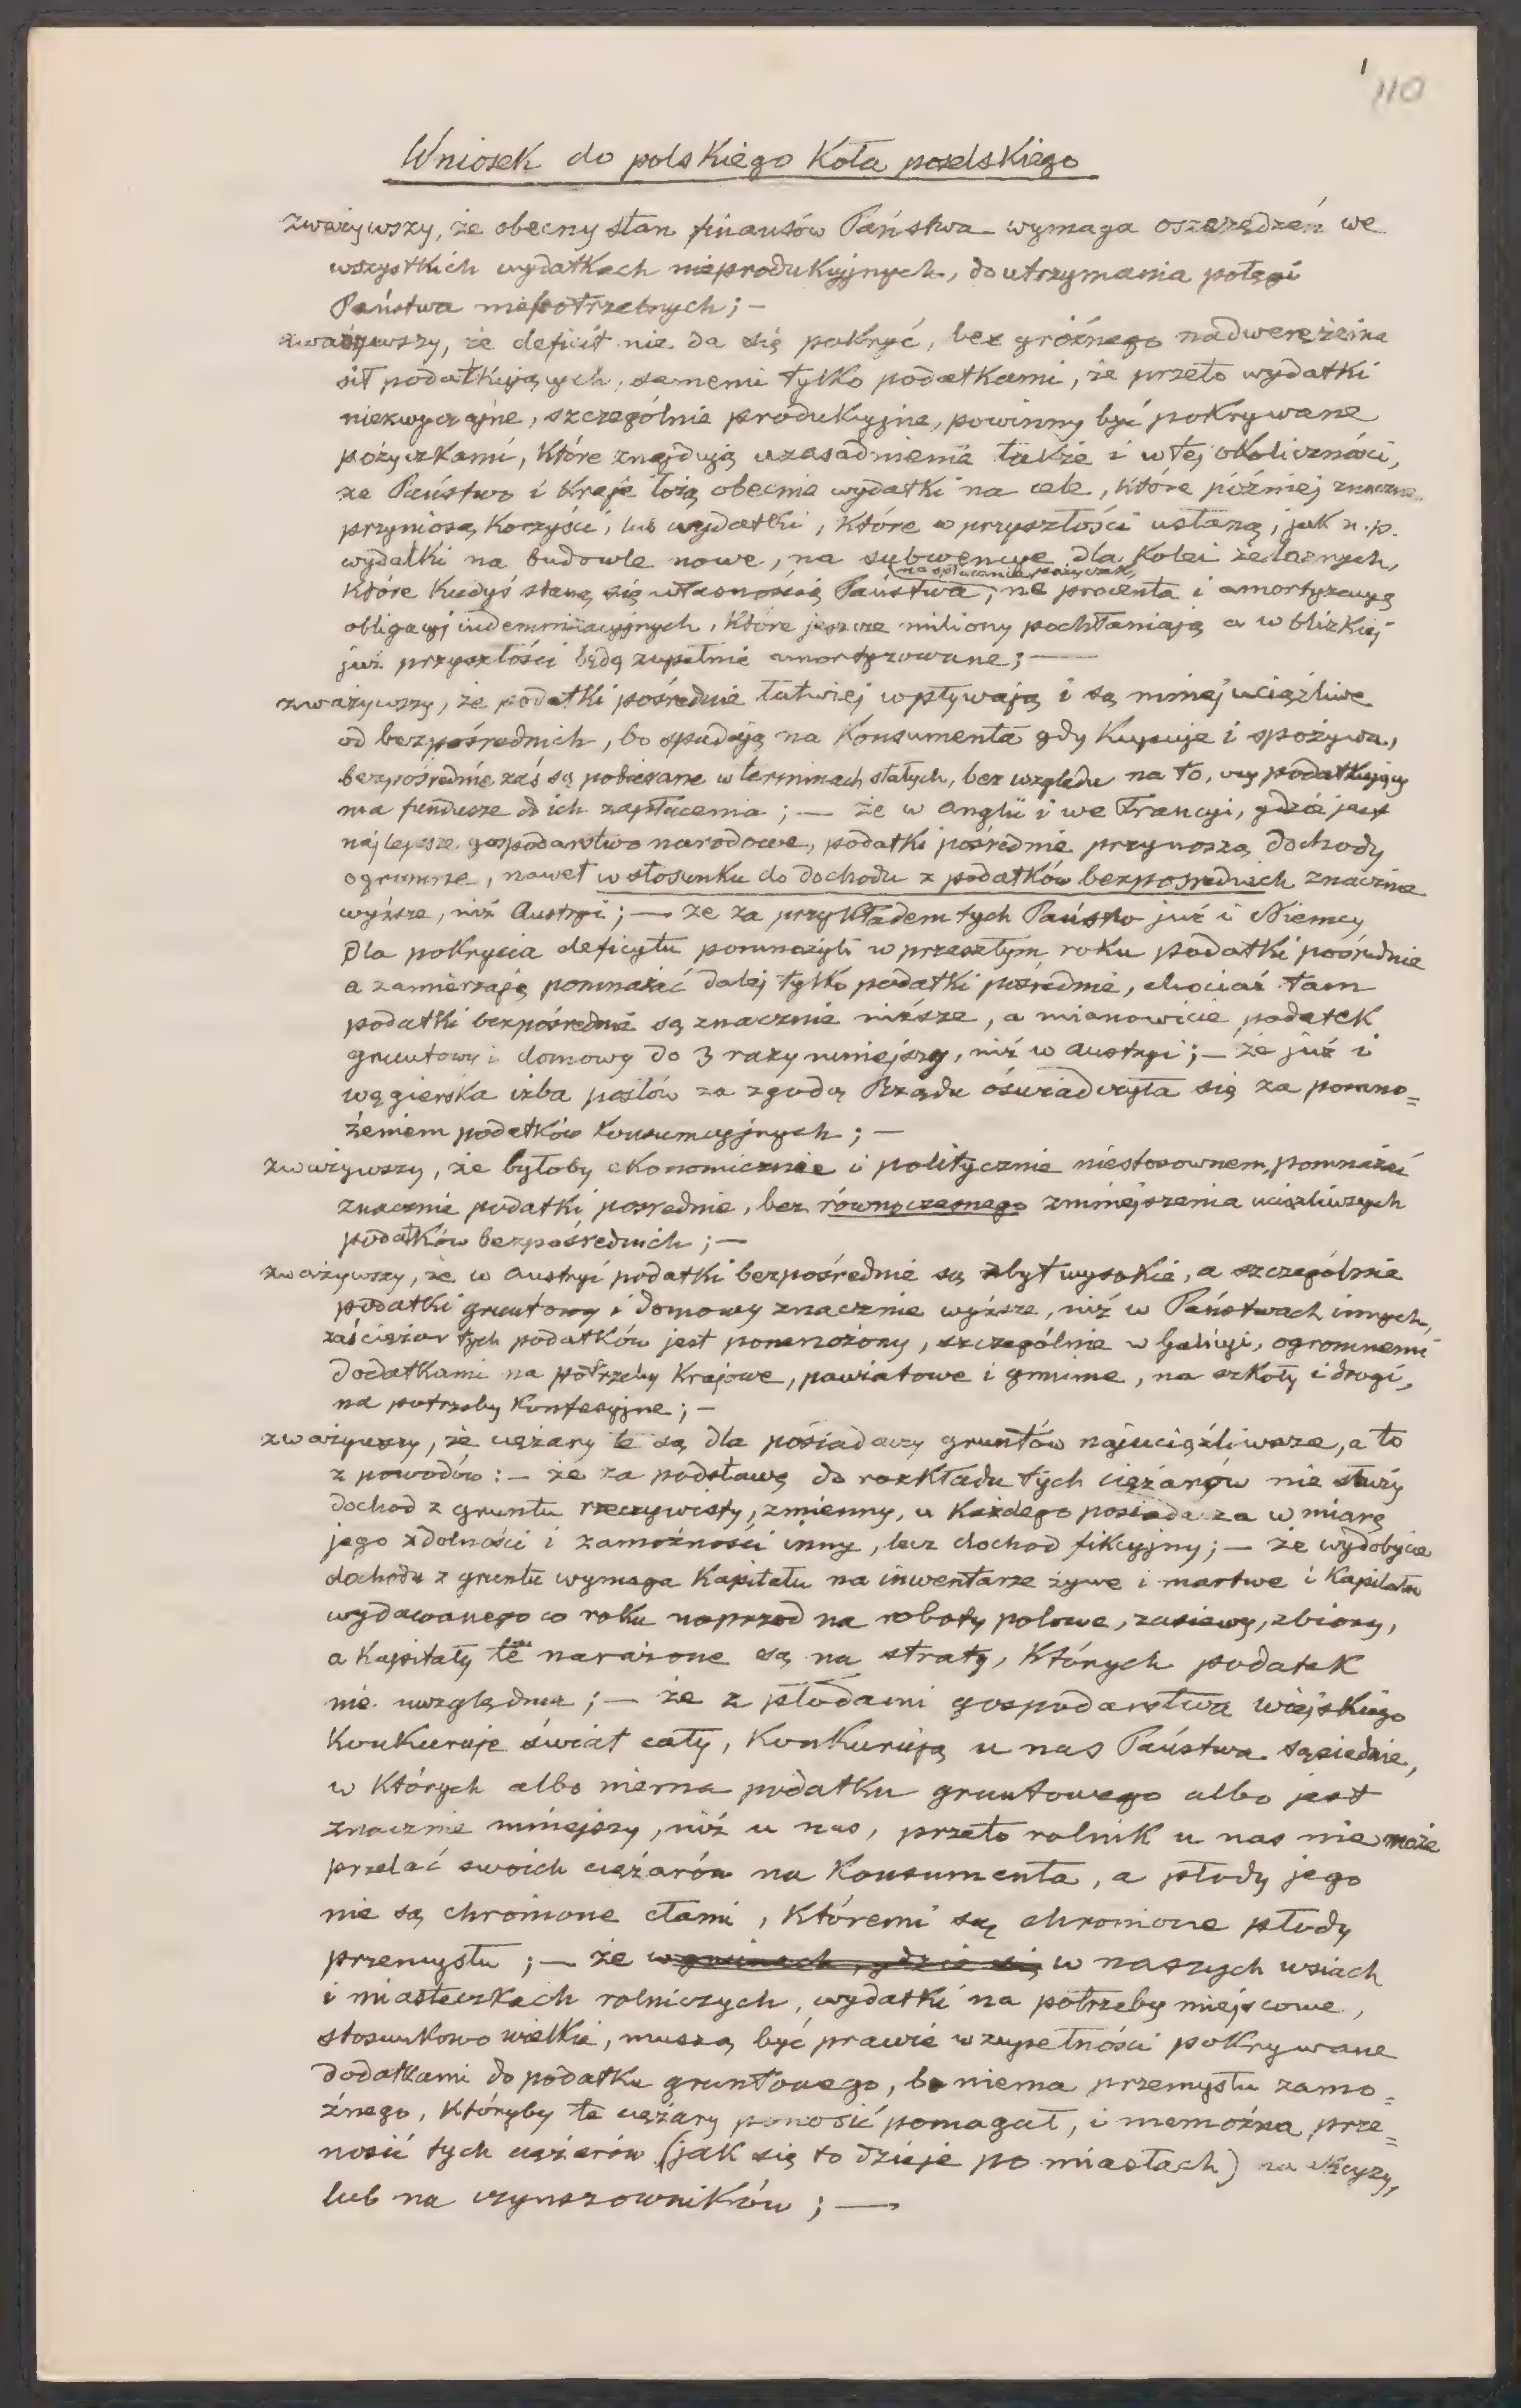 1
110
Wniosek do polskiego Koła poselskiego
zważywszy, że obecny stan finansów Państwa wymaga oszczędzeń we
wszystkich wydatkach nieprodukcyjnych, do utrzymania potęgi
Państwa niepotrzebnych; —
zważywszy, że deficit nie da się pokryć, bez gróźnego nadweręźenia
sił podatkujących, samemi tylko podatkami, że przeto wydatki
niezwyczajne, szczególnie produkcyjne, powinny być pokrywane
pożyczkami, które znajdują uzasadnienie także i w tej okoliczności,
że Państwo i Kraje łożą obecnie wydatki na cele, które później znaczne
przyniosą korzyści, lub wydatki, które w przyszłości ustaną, jak n. p.
wydatki na budowle nowe, na subwencye dla Kolei żelaznych,
na spłacenie pożyczek,
które kiedyś staną się własnością Państwa, na procenta i amortyzacyę
obligacyj indemnizacyjnych, które jeszcze miliony pochłaniają a w blizkiej
już przyszłości będą zupełnie amortyzowane; —
zważywszy, że podatki pośrednie łatwiej wpływają i są mniej uciążliwe
od bezpośrednich, bo spadają na Konsumenta gdy Kupuje i spożywa,
bezpośrednie zaś są pobierane w terminach stałych, bez względu na to, czy podatkujący
ma fundusze do ich zapłacenia; — że w Anglii i we Francyi, gdzie jest
najlepsze gospodarstwo narodowe, podatki pośrednie przynoszą dochody
ogromne, nawet w stosunku do dochodu z podatków bezpośrednich znacznie
wyższe, niż Austryi; — że za przykładem tych Państw już i Niemcy
dla pokrycia deficytu pomnożyli w przeszłym roku podatki pośrednie
a zamierzają pomnażać dalej tylko podatki pośrednie, chociaż tam
podatki bezpośrednie są znacznie niższe, a mianowicie podatek
gruntowy i domowy do 3 razy mniejszy, niż w Austryi; — że już i
węgierska izba posłów za zgodą Rządu oświadczyła się za pomno=
żeniem podatków konsumcyjnych; —
zważywszy, że byłoby ekonomicznie i politycznie niestosownem, pomnażać
znacznie podatki pośrednie, bez równoczesnego zmniejszenia uciążliwszych
podatków bezpośrednich; —
zważywszy, że w Austryi podatki bezpośrednie są zbyt wysokie, a szczególnie
podatki gruntowy i domowy znacznie wyższe, niż w Państwach innych,
zaś ciężar tych podatków jest pomnożony, szczególnie w Galicyi, ogromnemi
dodatkami na potrzeby Krajowe, powiatowe i gminne, na szkoły i drogi,
na potrzeby Konfesyjne; —
zważywszy, że ciężary te są dla posiadaczy gruntów najuciążliwsze, a to
z powodów: — że za podstawę do rozkładu tych ciężarów nie służy
dochod z gruntu rzeczywisty, zmienny, u Każdego posiadacza w miarę
jego zdolności i zamożności inny, lecz dochod fikcyjny; — że wydobycie
dochodu z gruntu wymaga Kapitału na inwentarze żywe i martwe i Kapitału
wydawanego co roku naprzod na roboty polowe, zasiewy, zbiory,
a Kapitały te narażone są na straty, których podatek
nie uwzględnia; — że z płodami gospodarstwa wiejskiego
Konkuruje świat cały, Konkurują u nas Państwa sąsiednie,
w których albo niema podatku gruntowego albo jest
znacznie mniejszy, niż u nas, przeto rolnik u nas nie może
przelać swoich ciężarów na Konsumenta, a płody jego
nie są chronione cłami, któremi są chronione płody
przemysłu; — że w gminach, gdzie się w naszych wsiach
i miasteczkach rolniczych, wydatki na potrzeby miejscowe,
stosunkowo wielkie, muszą być prawie w zupełności pokrywane
dodatkami do podatku gruntowego, bo niema przemysłu zamo=
żnego, któryby te ciężary ponosić pomagał, i niemożna prze=
nosić tych ciężarów (jak się to dzieje po miastach) na
lub na czynszowników; —